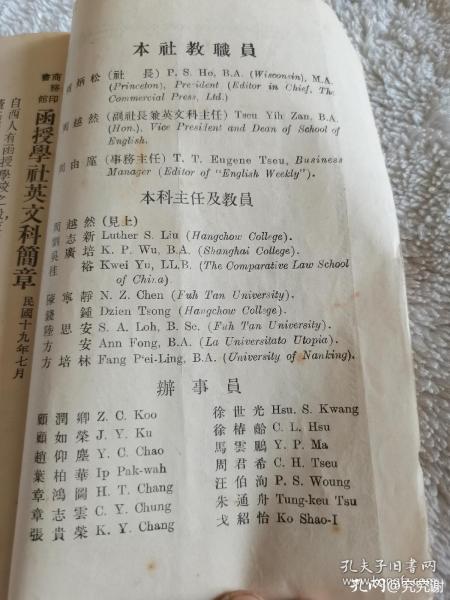 本社教職員
炳松 (社 長) P. S. Ho, B.A. (Wisconsin), M.A.
(Princeton), President (Editor in Chief, The
Commercial Press, Ltd.)
周越然 (副社長兼英文科主任) Tseu Yih Zan, B.A.
(Hon.), Vice President and Dean of School of
English.
周由廑 (事務主任) T. T. Eugene Tseu, Business
Manager (Editor of "English Weekly").
本科主任及教員
周越然 (見上)
劉志新 Luther S. Liu (Hangchow College).
吳廣培 K. P. Wu, B.A. (Shanghai College).
桂裕 Kwei Yu, LL.B. (The Comparative Law School
of China).
陳寧靜 N. Z. Chen (Fuh Tan University).
錢鍾 Dzien Tsong (Hangchow College).
陸思安 S. A. Loh, B. Sc. (Fuh Tan University).
方安 Ann Fong, B.A. (La Universitato Utopia).
方培林 Fang P'ei-Ling, B.A. (University of Nanking).
辦事員
顧潤卿 Z. C. Koo
顧如榮 J. Y. Ku
趙仰塵 Y. C. Chao
葉柏華 Ip Pak-wah
章鴻圖 H. T. Chang
章志雲 C. Y. Chung
張貴榮 K. Y. Chang
徐世光 Hsu. S. Kwang
徐椿齡 C. L. Hsu
馬雲鵬 Y. P. Ma
周君希 C. H. Tseu
汪伯洵 P. S. Woung
朱通舟 Tung-keu Tsu
戈紹怡 Ko Shao-I
商務印書館函授學社英文科簡章 民國十九年七月
自西人有函授學校之
孔夫子旧书网
孔网@究究谢